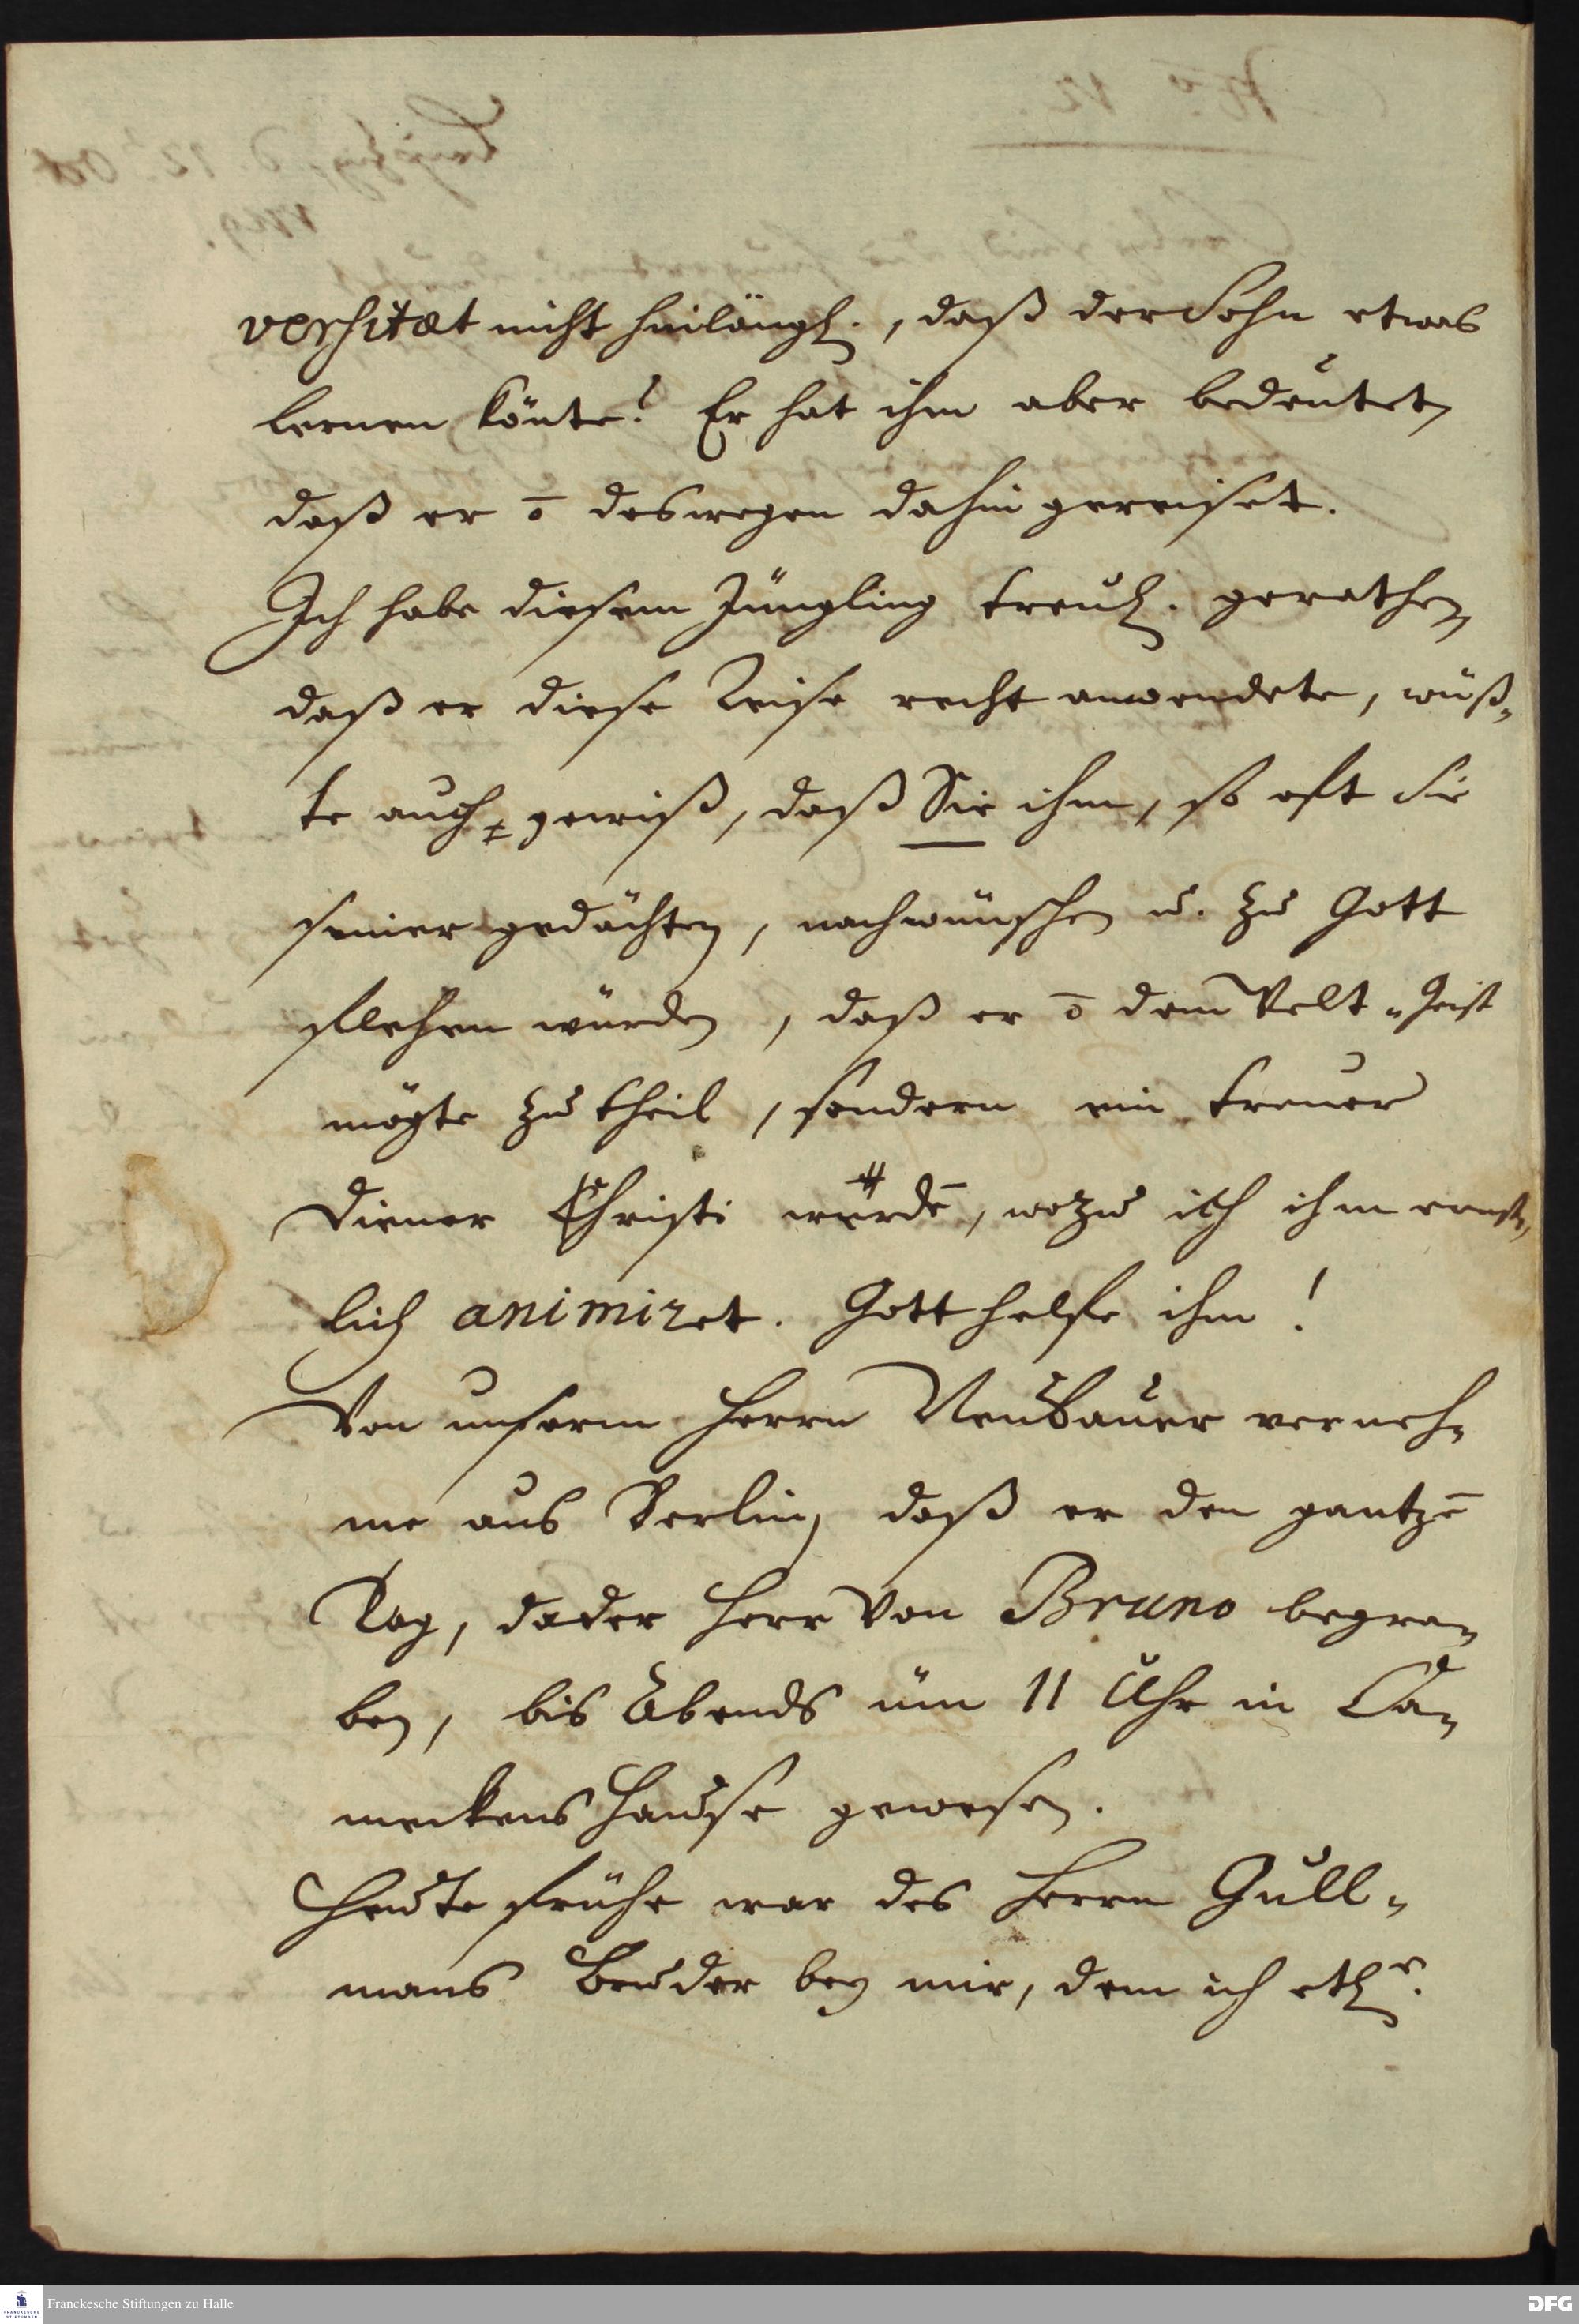 versitæt nicht hinlängl., daß der Sohn etwas
lernen könte? Er hat ihm aber bedeutet,
daß er ō deswegen dahin gereiset.
Ich habe diesem Jüngling treul. gerathen,
daß er diese Reise recht anwendete, wüß-
te auch gewiß, daß Sie ihm, so oft Sie
seiner gedächten, nachwünschen u. zu Gott
flehen würden, daß er ō dem Welt-Geist
mögte zu theil, sondern ein treuer
Diener Christi würde, wozu ich ihm ernst-
lich animiret. Gott helfe ihm!
Von unserm Herrn Neubauer verneh-
me aus Berlin, daß er den gantzē
Tag, da der Herr von Bruno begra-
ben, bis Abends üm 11 Uhr in Ca-
meckens Hause gewesen.
Heute frühe war des Herrn Gull-
manns Bruder bey mir, dem ich etl.
Franckesche Stiftungen zu Halle
DFG